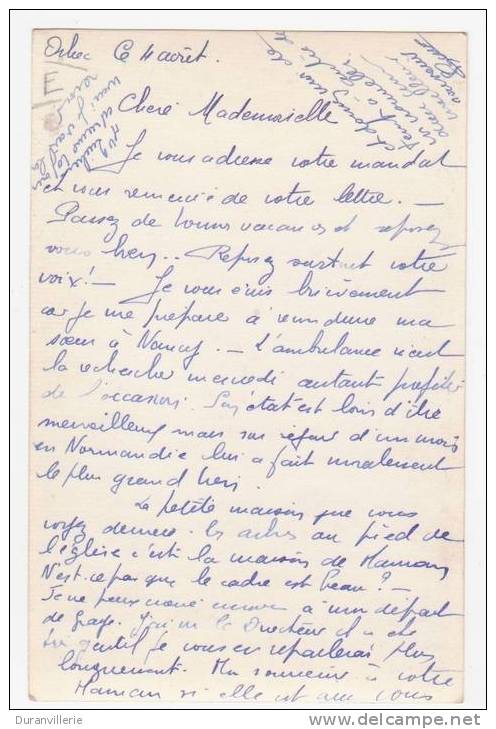 Orbec le 4 août.
Chère Mademoiselle
Je vous adresse votre mandat
et vous remercie de votre lettre. —
Passez de bonnes vacances et reposez
vous bien.. Reposez surtout votre
voix! — Je vous écris brièvement
car je me prépare à reconduire ma
sœur à Nancy. — L'ambulance vient
la rechercher mercredi autant profiter
de l'occasion. Son état est loin d'être
merveilleux mais son séjour d'un mois
en Normandie lui a fait moralement
le plus grand bien.
La petite maison que vous
voyez derrière les arbres au pied de
l'église c'est la maison de Maman
N'est-ce pas que le cadre est beau? —
Je ne peux à mon départ
de J'ai vu le Directeur il a été
très gentil je vous en reparlerai plus
longuement. Mon souvenir à votre
Maman si elle est avec vous
Duranvillerie
delcampe.net